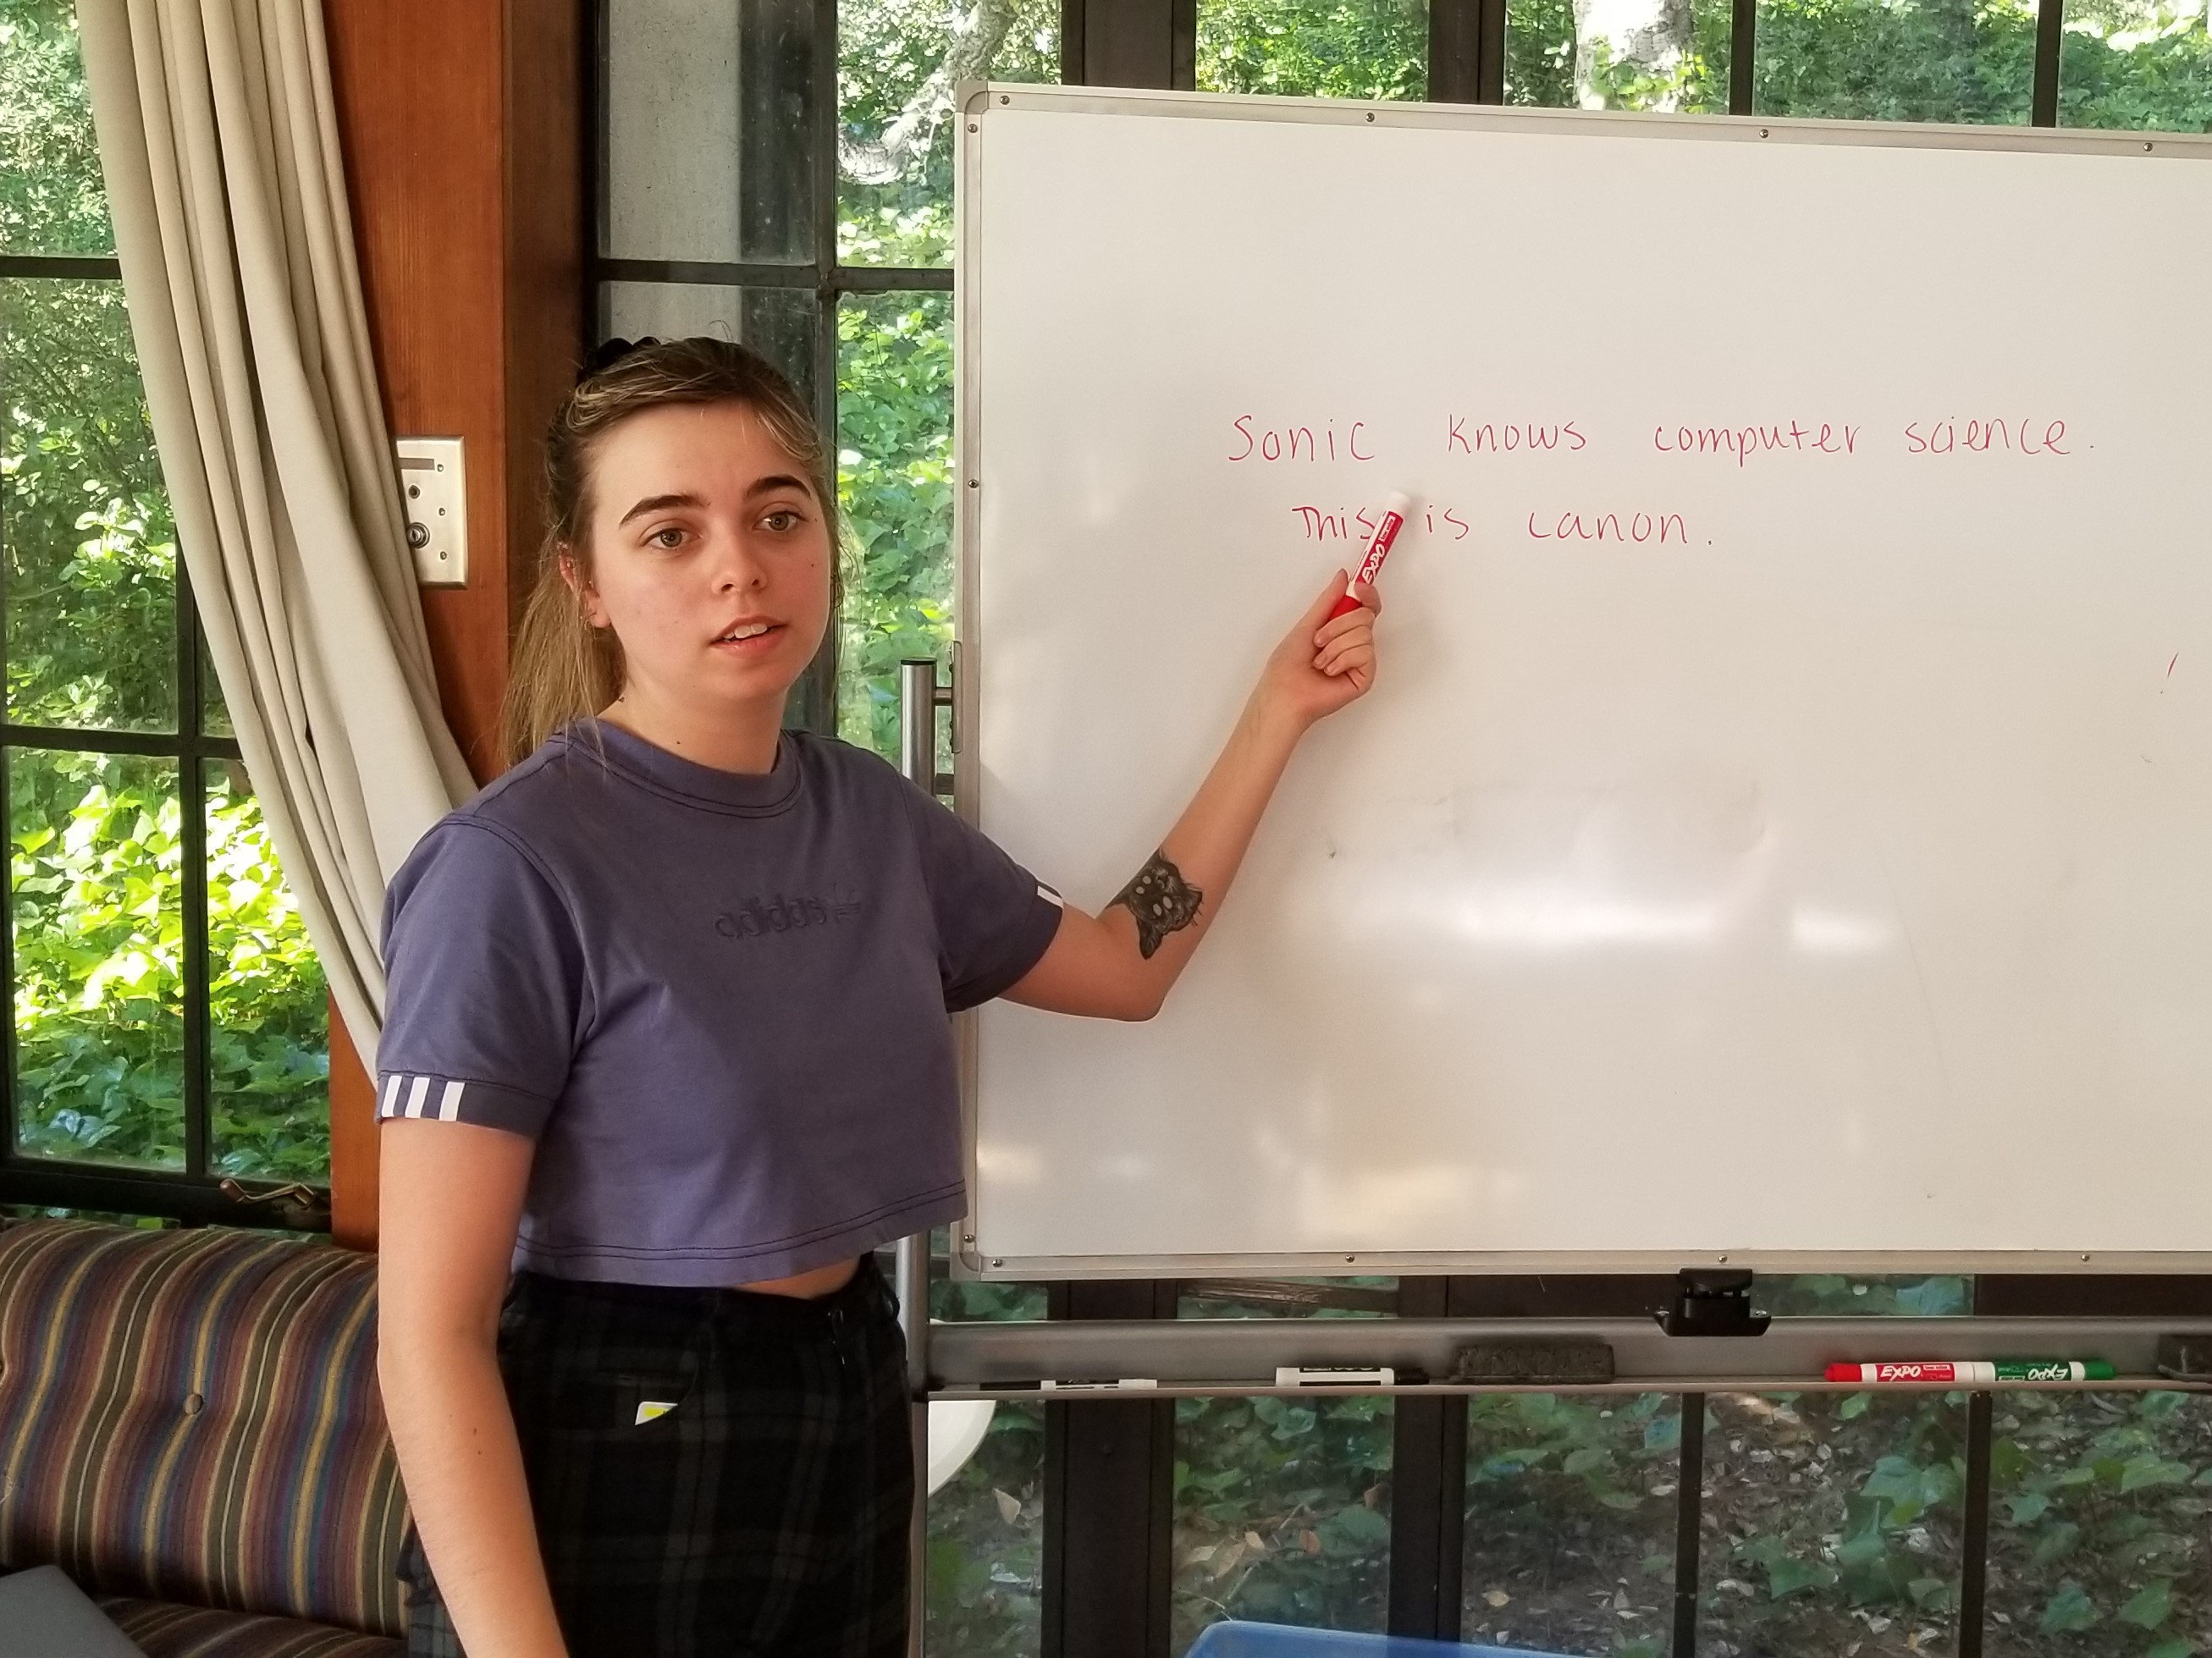 Sonic knows computer science.
This is canon.
EXPO
adidas
EXPO
EXPO